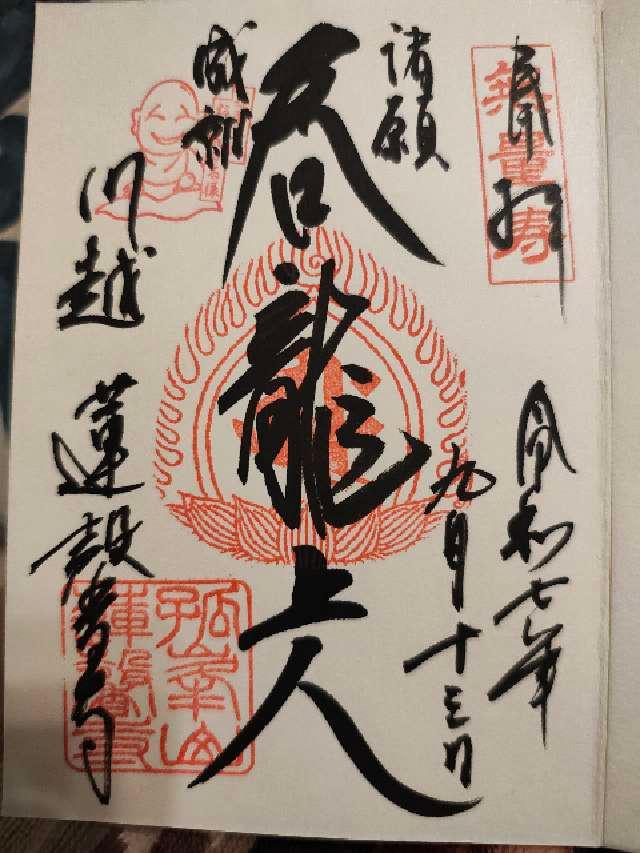 奉拝
無量寿
令和七年
九月十三日
諸願
呑龍上人
成就
川越 蓮馨寺
孤峯山
蓮馨寺